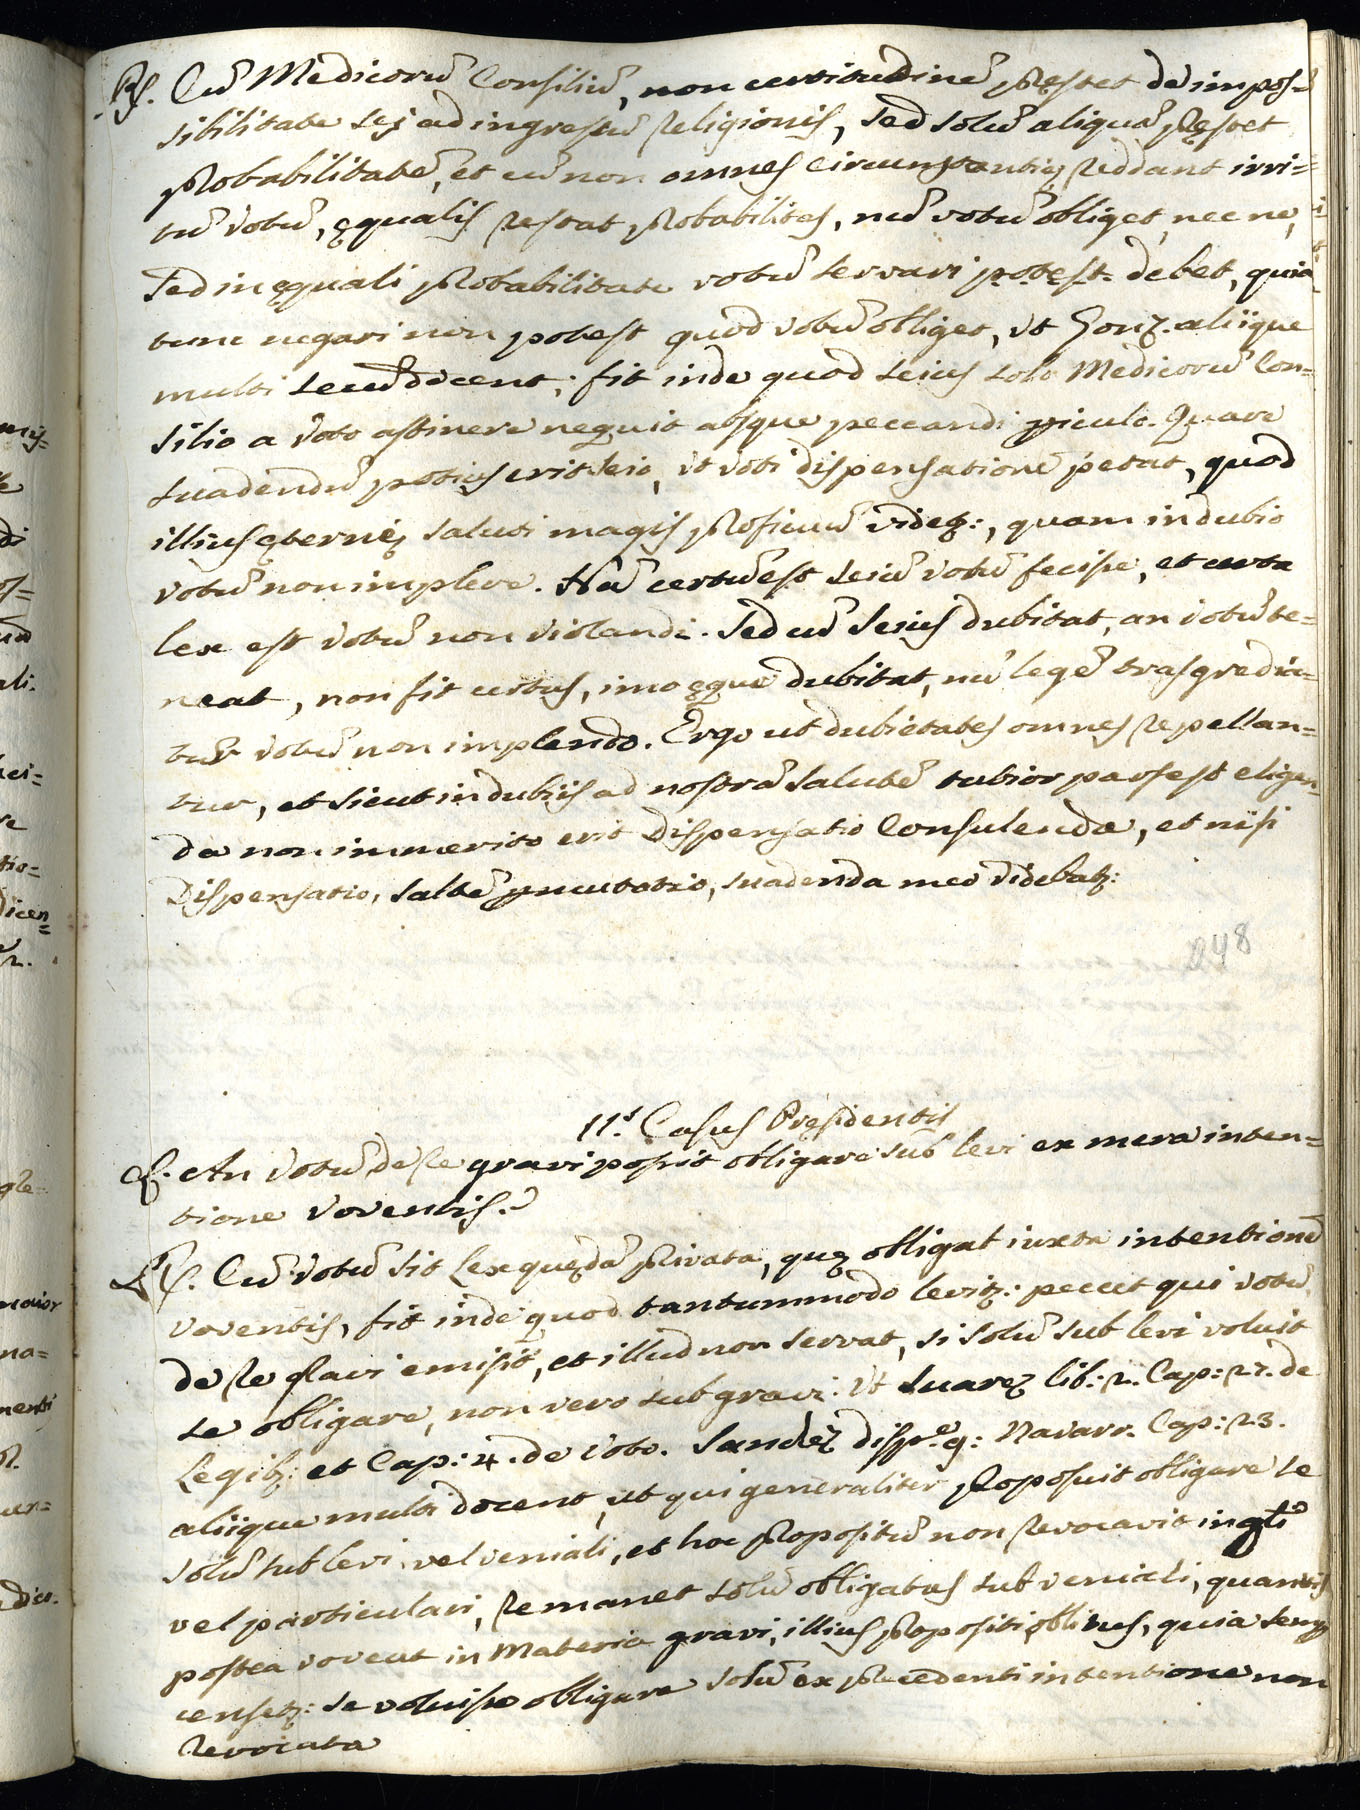 R. Cũ Medicorũ Consiliũ, non certitudinẽ pręstet de impos=
sibilitate Sej ad ingressũ Religionis, sed solũ aliquã pręstet
probabilitatẽ, et cũ non omnes circumstantię reddant irri=
tũ votũ, ęqualis restat probabilitas, nũ votũ obliget, nec ne,
sed in ęquali probabilitate votũ servari potest debet, quia
tunc negari non potest quod votũ obliget, ut Gonz. aliique
multi secũ docent; fit inde quod Seius solo Medicorũ Con=
silio a voto astinere nequit absque peccandi piculo. Quare
suadendũ potius erit Seio, ut voti dispensationẽ petat, quod
illius ęternę saluti magis proficuũ videtʒ:, quam in dubio
votũ non implere. Nã certũ est Seiũ votũ fecisse, et certa
lex est votũ non violandi. Sed cũ Seius dubitat, an votũ te=
neat, non fit certus, imo ęque dubitat, nũ legẽ trasgredia=
tur votũ non implendo. Ergo ut dubietates omnes repellan=
tur, et sicut in dubiis ad nostrã salutẽ tutior pars est eligen=
da non immerito erit Dispensatio Consulenda, et nisi
Dispensatio, saltẽ pmutatio, suadenda meo videbatʒ:
248
11.s Casus Pręsidentis
Q. An votũ de re gravi possit obligare sub levi ex mera inten=
tione voventis.?
R. Cũ votũ sit Lex quędã privata, quę obligat iuxta intentionẽ
voventis, fit inde quod tantummodo levitʒ: peccet qui votũ
de re gravi emisit, et illud non servat, si solũ sub levi voluit
se obligare, non vero sub gravi: Ut Suarez lib: 2. Cap: 27. de
Legibʒ: et Cap: 4. de Voto. Sanchez disp.e 9: Navarr. Cap: 23.
aliique multi docent, ut qui generaliter proposuit obligare se
solũ sub levi vel veniali, et hoc propositũ non revocavit in gñli
vel particulari, remanet solũ obligatus sub veniali, quamvis
postea voveat in Materia gravi, illius propositi oblitus, quia semp
censetʒ: se voluisse obligare solũ ex precedenti intentione non
revocata